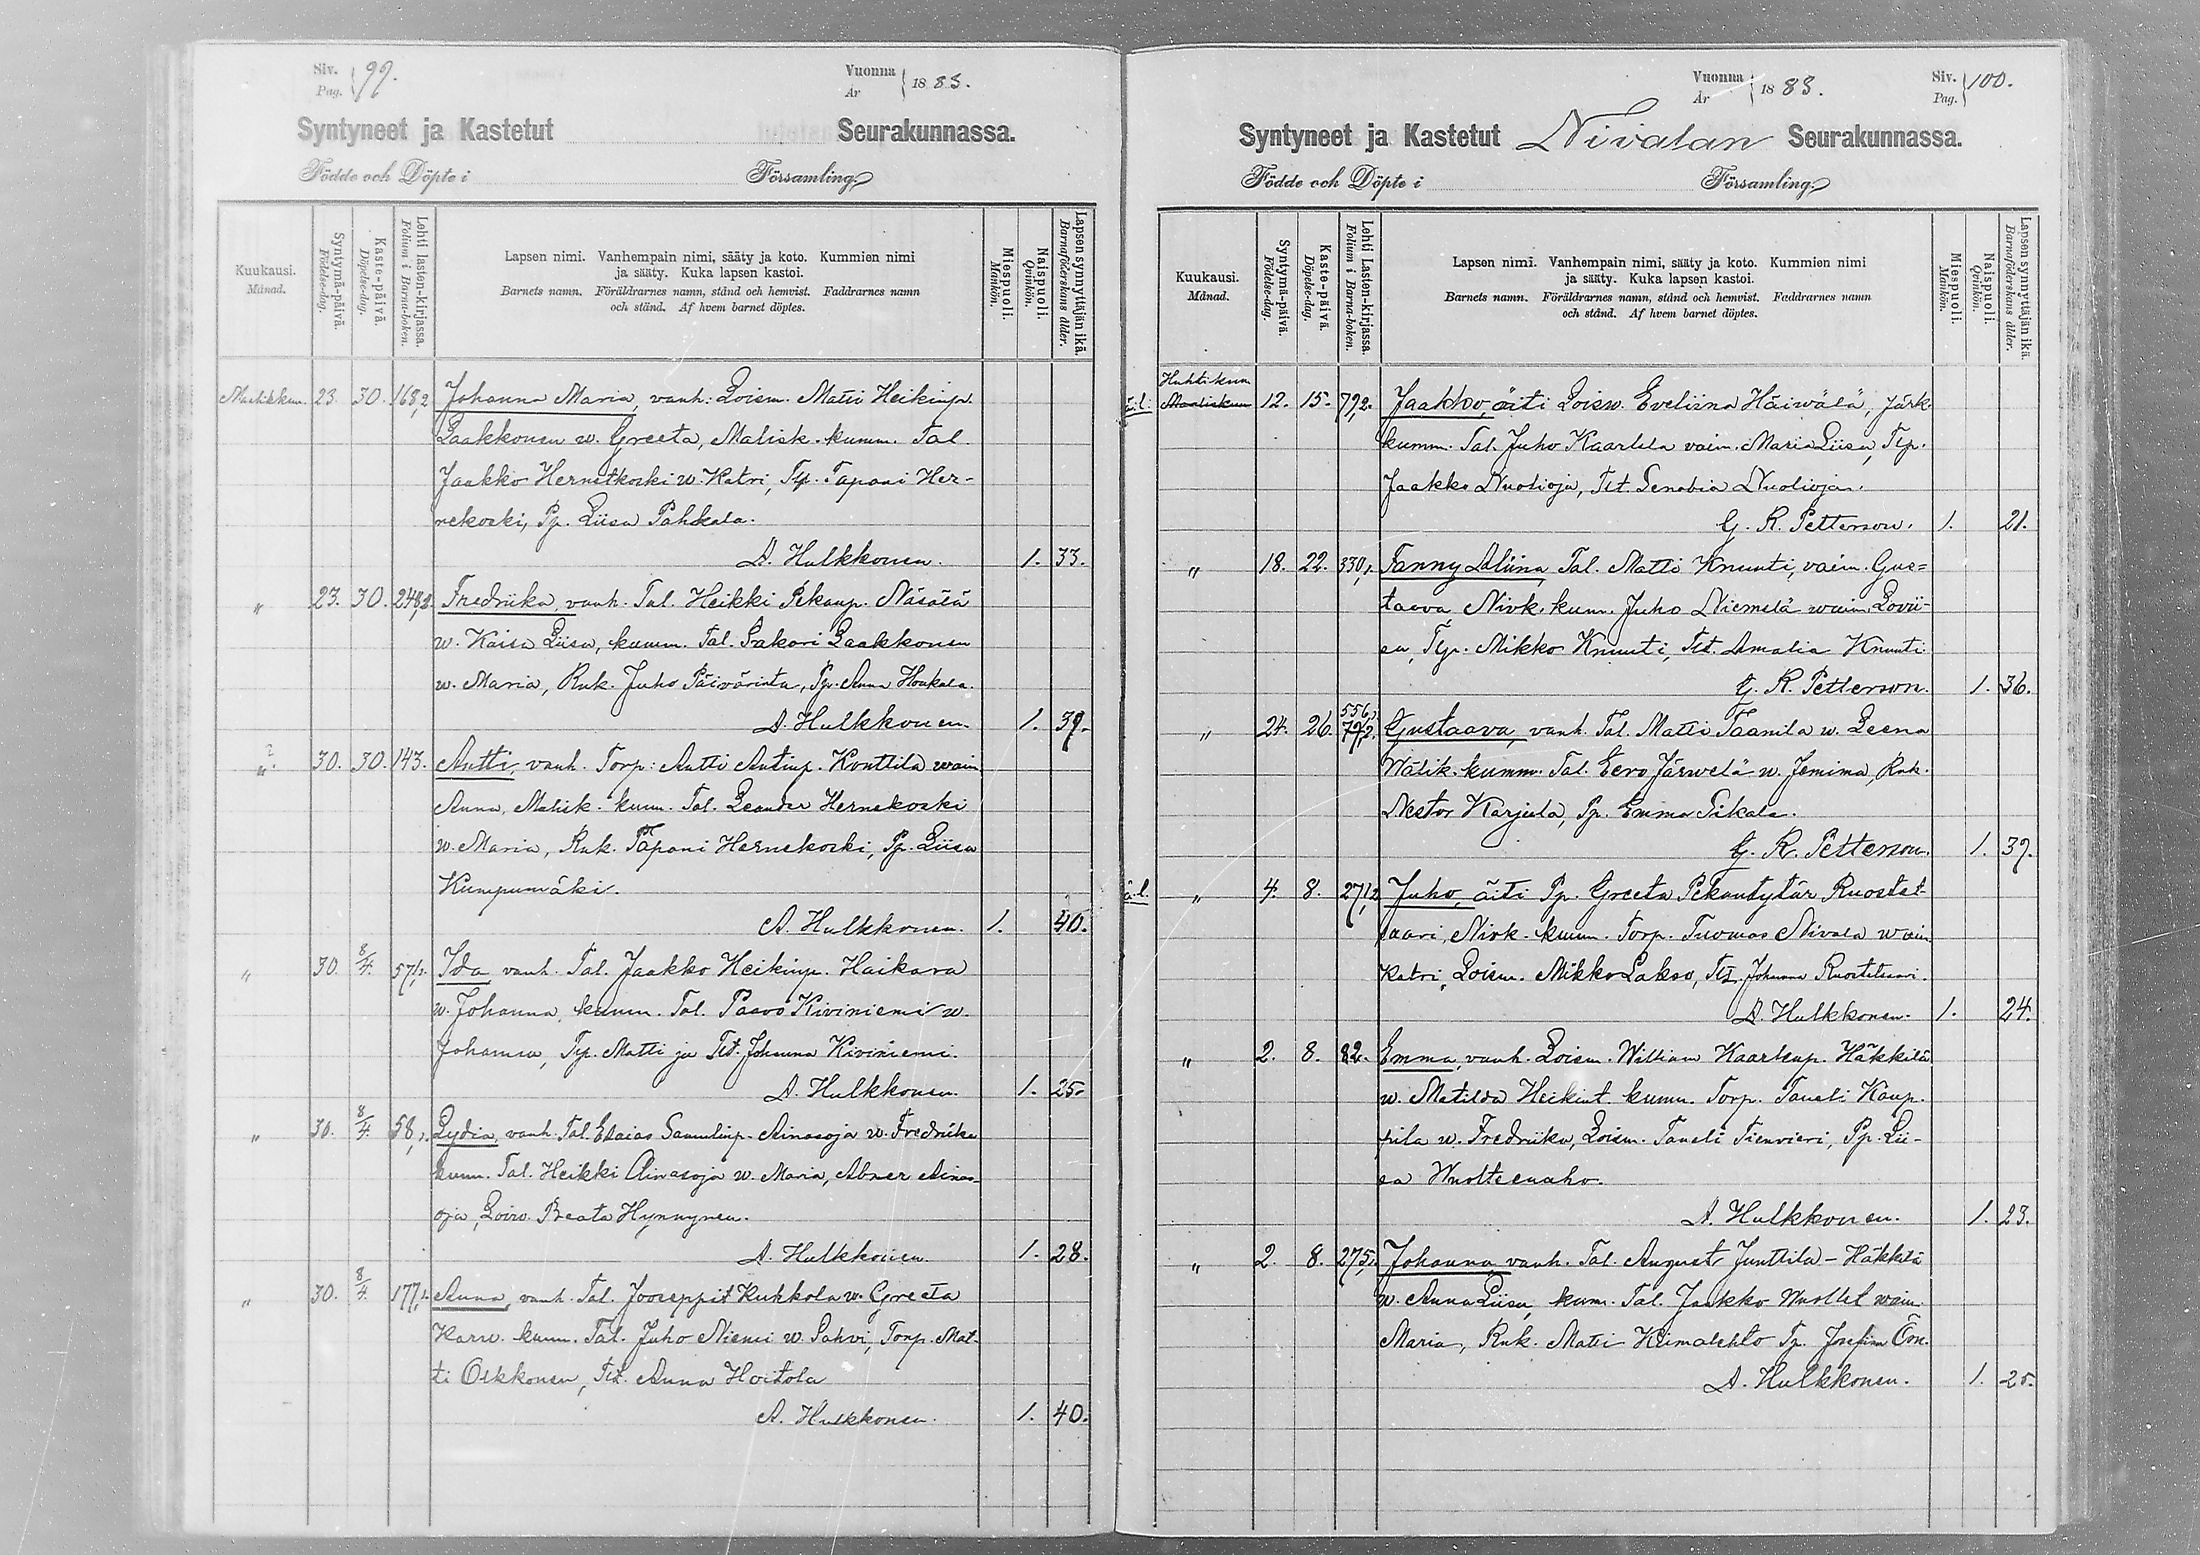 Siv. Pag. 99.
Vuonna År 1883.
Syntyneet ja Kastetut Seurakunnassa.
Födde och Döpte i Församling.
Kuukausi. Månad.
Syntymä-päivä. Födelse-dag.
Kaste-päivä. Döpelse-dag.
Lehti lasten-kirjassa. Folium i Barna-boken.
Lapsen nimi. Vanhempain nimi, sääty ja koto. Kummien nimi
ja sääty. Kuka lapsen kastoi.
Barnets namn. Föräldrarnes namn, stånd och hemvist. Faddrarnes namn
och stånd. Af hvem barnet döptes.
Miespuoli. Mankön.
Naispuoli. Qvinkön.
Lapsen synnyttäjän ikä. Barnaföderskans ålder.
Maalisskun. 23. 30. 168,2 Johanna Maria, vanh: Loism. Matti Heikinp.
Laakkonen w. Greeta, Malisk. kumm. Tal.
Jaakko Hernetkoski w. Katri, Tlp. Tapani Her-
nekoski, Pp. Liisa Pahkala.
A. Hulkkonen. 1. 33.
„ 23. 30. 248,2. Fredriika, vanh. Tal. Heikki Pekanp. Näsälä
w. Kaisa Liisa, kumm. Tal. Sakari Laakkonen
w. Maria, Rnk. Juho Päivärinta, Pp. Anna Houkala.
A. Hulkkonen. 1. 39.
„ 30. 30. 143. Antti, vanh. Torp: Antti Antinp. Konttila waim
Anna, Malisk. kum. Tal. Leander Hernekoski
w. Maria, Rnk. Tapani Hernekoski, Pp. Liisa
Kumpumäki.
A. Hulkkonen. 1. 40.
„ 30. 8/4. 57,1. Ida, vanh. Tal. Jaakko Heikinp. Haikara
w. Johanna, kumm. Tal. Paavo Kiviniemi w.
Johanna, Tlp. Matti ja Tlt. Johanna Kiviniemi.
A. Hulkkonen. 1. 25.
„ 30. 8/4. 58,1. Lydia, vanh. Tal. Esaias Samulinp. Ainasoja w. Fredriika
kumm. Tal. Heikki Ainasoja w. Maria, Abner Ainas-
oja, Loisv. Beata Hynnynen.
A. Hulkkonen. 1. 28.
„ 30. 8/4. 177,1. Anna, vanh. Tal. Jooseppi Kukkola w. Greeta
Karv. kumm. Tal. Juho Niemi w. Sahvi, Torp. Mat-
ti Oekkonen, Tlt. Anna Hoitola
A. Hulkkonen. 1. 40.
Vuonna År 1883.
Siv. Pag. 100.
Syntyneet ja Kastetut Nivalan Seurakunnassa.
Födde och Döpte i Församling.
Kuukausi. Månad.
Syntymä-päivä. Födelse-dag.
Kaste-päivä. Döpelse-dag.
Lehti Lasten-kirjassa. Folium i Barna-boken.
Lapsen nimi. Vanhempain nimi, sääty ja koto. Kummien nimi
ja sääty. Kuka lapsen kastoi.
Barnets namn. Föräldrarnes namn, stånd och hemvist. Faddrarnes namn
och stånd. Af hvem barnet döptes.
Miespuoli. Mankön.
Naispuoli. Qvinkön.
Lapsen synnyttäjän ikä. Barnaföderskans ålder.
Huhtikun
ä.l. Maaliskun 12. 15. 79,2. Jaakko, äiti Loisv. Eveliina Häiwälä, Järk.
kumm. Tal. Juho Kaarlela vaim. Maria Liisa, Tlp.
Jaakko Nuolioja, Tlt. Senobia Nuolioja.
G. R. Petterson. 1. 21.
„ 18. 22. 330,1. Fanny Aliina, Tal. Matti Knuuti, vaim. Gus=
taava, Nivk. kum. Juho Niemelä waim. Lovii-
sa, Tlp. Mikko Knuuti, Tlt. Amalia Knuuti.
G. R. Petterson. 1. 36.
556,
„ 24. 26. 79,2. Gustaava, vanh. Tal. Matti Taanila w. Leena
Wälik. kumm. Tal. Eero Järwelä w. Jemima, Rnk.
Nestor Karjula, Pp. Emma Sikala.
G. R. Petterson. 1. 39.
ä.l. „ 4. 8. 271,2 Juho, äiti Pp. Greeta Pekantytär Ruostet-
saari, Nivk. kumm. Torp. Tuomas Nivala waim
Katri, Loism. Mikko Lakso, Tlt. Johanna Ruostetsaari.
A. Hulkkonen. 1. 24.
„ 2. 8. 82. Emma, vanh. Loism. William Kaarlenp. Häkkilä
w. Matilda Heikint. kumm. Torp. Taneli Kaup-
pila w. Fredriika, Loism. Taneli Tienvieri, Pp. Lii-
sa Wuolteenaho.
A. Hulkkonen. 1. 23.
„ 2. 8. 275,1. Johanna, vanh. Tal. August Junttila - Häkkilä
w. Anna Liisa, kum. Tal. Jaakko Wuollet waim
Maria, Rnk. Matti Heimalehto Pp. Josefina
A. Hulkkonen. 1. 25.